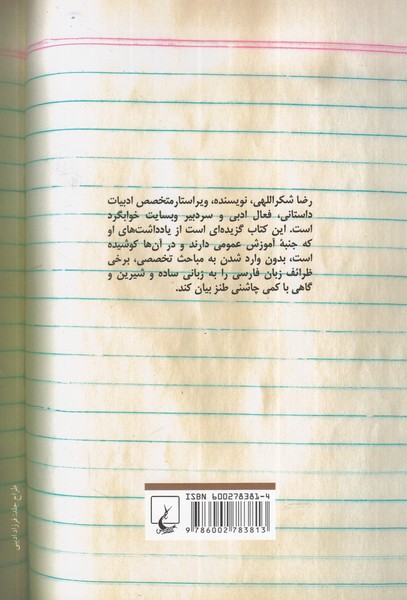 رضا شکراللهی، نویسنده، ویراستار متخصص ادبیات
داستانی، فعال ادبی و سردبیر وبسایت خوابگرد
است. این کتاب گزیده‌ای است از یادداشت‌های او
که جنبهٔ آموزش عمومی دارند و در آن‌ها کوشیده
است، بدون وارد شدن به مباحث تخصصی، برخی
ظرائف زبان فارسی را به زبانی ساده و شیرین و
گاهی با کمی چاشنی طنز بیان کند.
طراح جلد: فرزاد ادیبی
ISBN 600278381-4
9 786002 783813